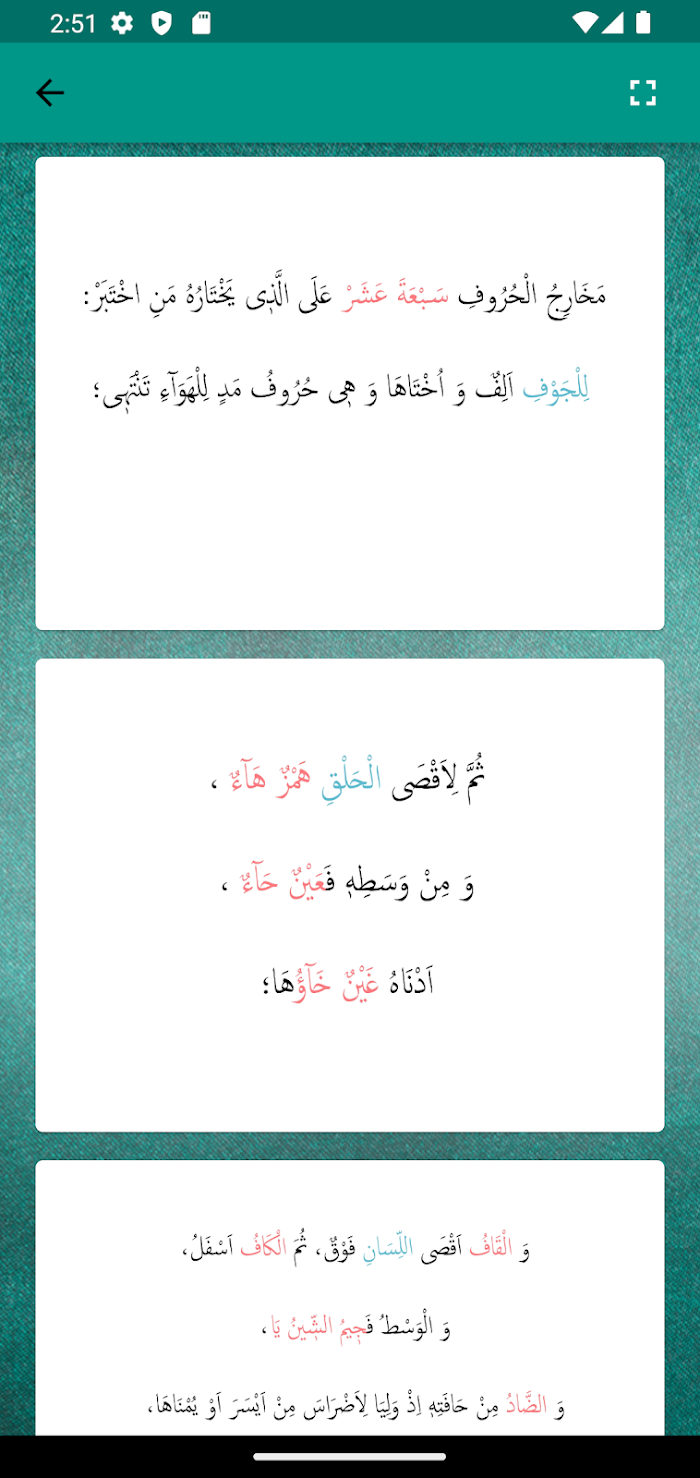 2:51
مَخَارِجُ الْحُرُوفِ سَبْعَةَ عَشَرْ عَلَى الَّذٖى يَخْتَارُهُ مَنِ اخْتَبَرْ:
لِلْجَوْفِ اَلِفٌ وَ اُخْتَاهَا وَ هِٖى حُرُوفُ مَدٍ لِلْهَوَآءِ تَنْتَهٖى؛
ثُمَّ لِاَقْصَى الْحَلْقِ هَمْزٌ هَآءٌ ،
وَ مِنْ وَسَطِهٖ فَعَيْنٌ حَآءٌ ،
اَدْنَاهُ غَيْنٌ خَآؤُهَا؛
وَ الْقَافُ اَقْصَى اللِّسَانِ فَوْقٌ، ثُمَ الْكَافُ اَسْفَلُ،
وَ الْوَسْطُ فَجٖيمُ الشّٖينُ يَا،
وَ الضَّادُ مِنْ حَافَتِهٖ اِذْ وَلِيَا لِاَضْرَاسَ مِنْ اَيْسَرَ اَوْ يُمْنَاهَا،